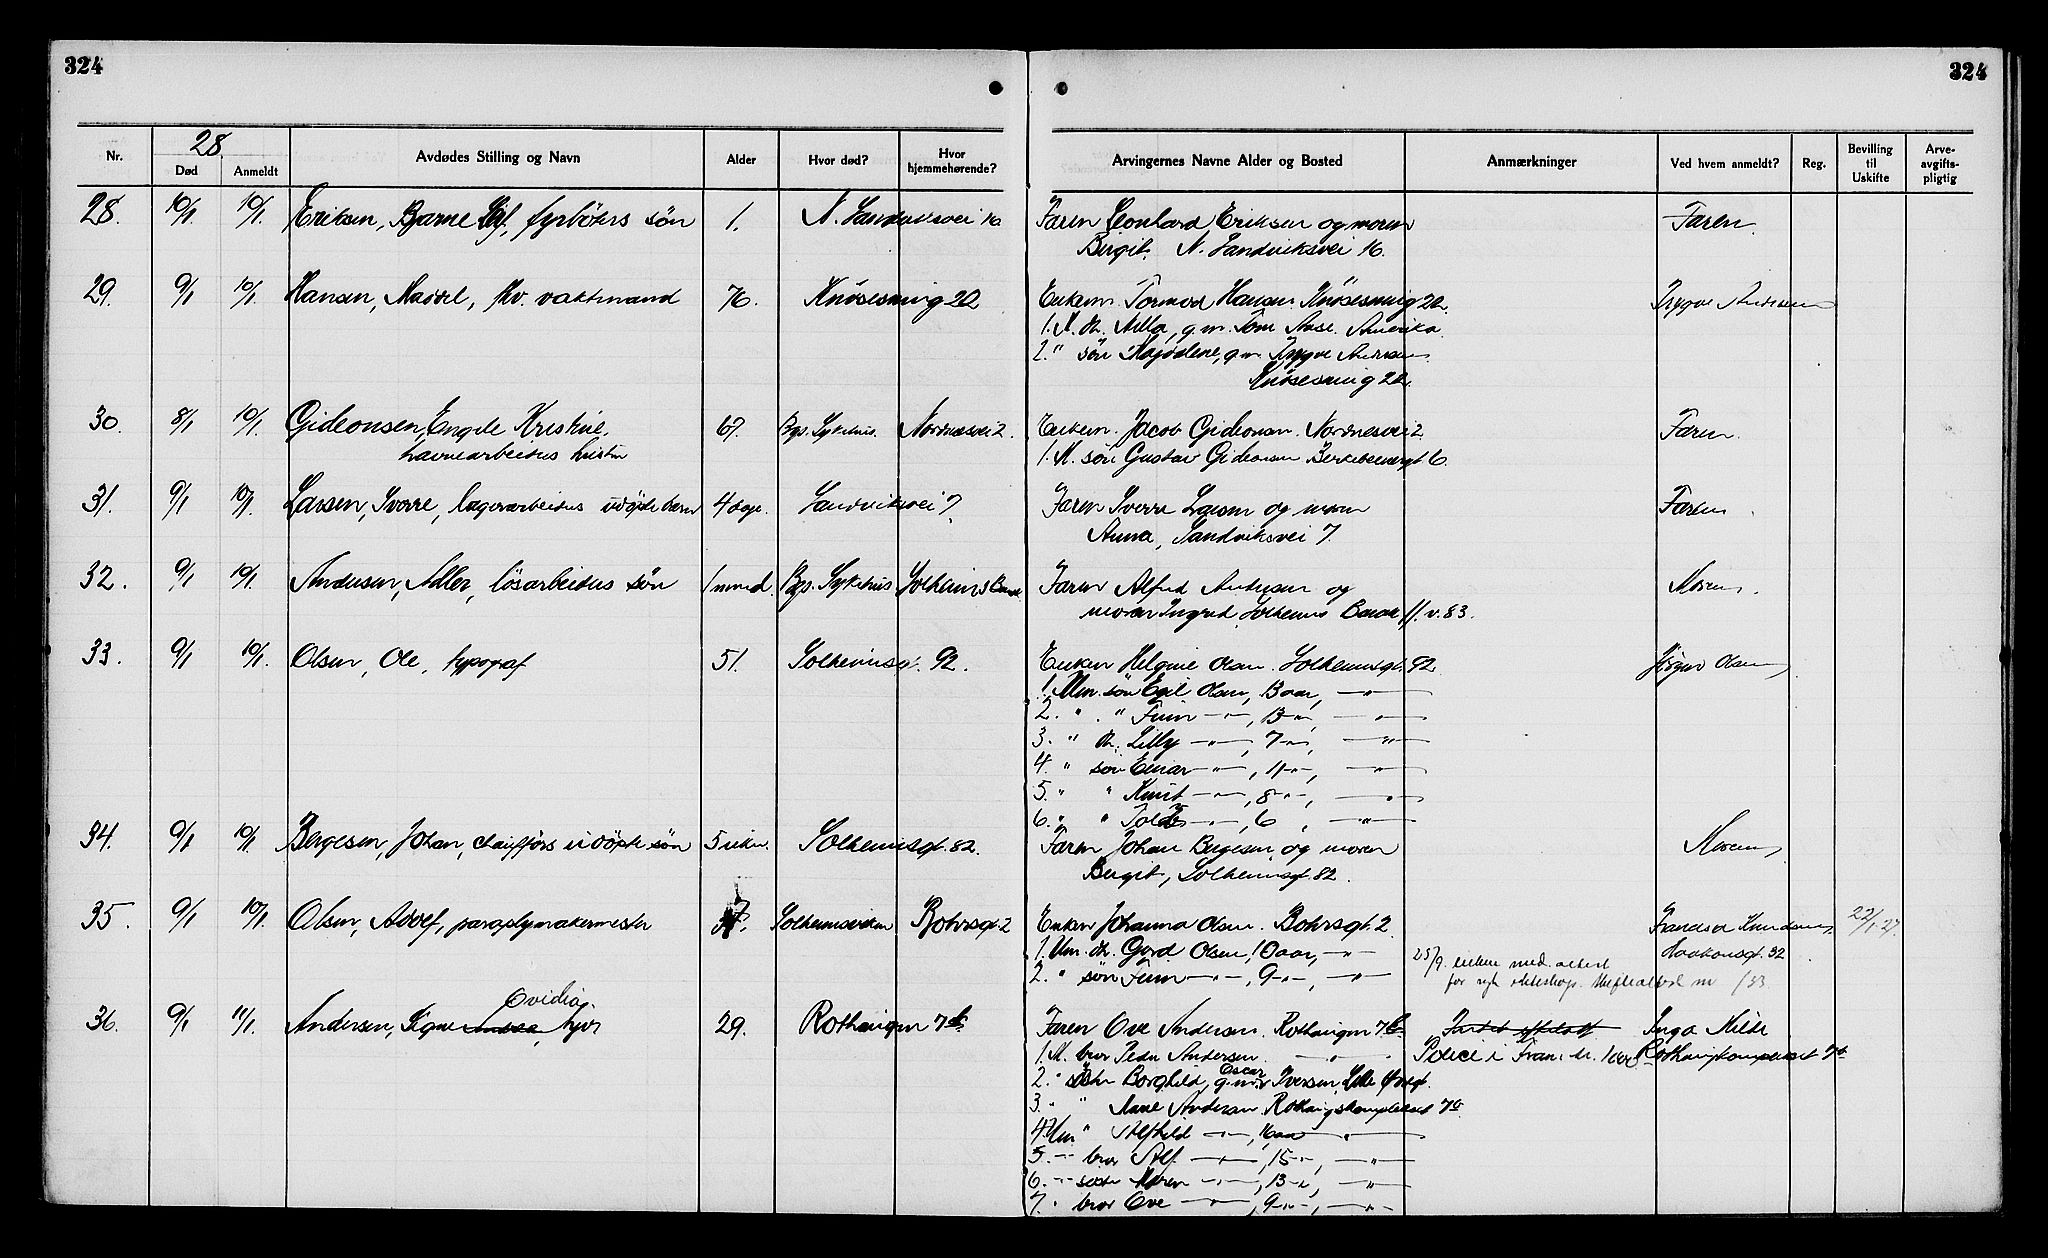 324
324
Nr.
28.
Død
Anmeldt
Avdødes Stilling og Navn
Alder
Hvor død?
Hvor hjemmehørende?
Arvingernes Navne Alder og Bosted
Anmærkninger
Ved hvem anmeldt?
Reg.
Bevilling til Uskifte
Arve-avgifts-pligtig
28. 10/1 10/1. Eriksen, Bjarne fyrbøters søn 1. N. Sandviksvei 16. Faren Leonhard Eriksen og moren Faren.
Birgit. N. Sandviksvei 16.
29. 9/1 10/1. Hansen, fhv. vaktmand 76. Knøsesmug 22. Enken Tormod Hansen Knøsesmug 22. Trygve Andersen
1. M. dt. Milla, g.m. Tom Aase. Amerika.
2. " søn Magdalene, g.m. Trygve Andersen
Knøsesmug 22.
30. 8/1 10/1. Gideonsen, Engele Kristine, 67. Bgs. Sykehus. Nordnesvei 2. Enkem. Jacob Gideonsen. Nordnesvei 2 Faren.
havnearbeiders hustru 1. M. søn Gustav Gideonsen 6.
31. 9/1 10/1. Larsen, Sverre, lagerarbeiders udøpte barn 4 dage. Sandviksvei 7. Faren Sverre Larsen og moren Faren.
Anna, Sandviksvei 7.
32. 9/1 10/1. Andersen, Adler, løsarbeiders søn 1 mned. Bgs. Sykehus Solheims Faren Alfred Andersen og Moren.
moren Ingrid, Solheims 11. v. 83.
33. 9/1 10/1. Olsen, Ole, typograf 51. Solheimsgt. 92. Enken Helgine Olsen. Solheimsgt. 92. Jørgen Olsen
1. Um. søn Egil Olsen, 13 aar, —"—
2. " " Finn —"—, 13 —"—, —"—
3. " dt. Lilly —"—, 7 —"—, —"—
4. " søn Einar —"—, 11 —"—, —"—
5. " " Knut —"—, 8 —"—, —"—
6. " " —"—, 6 , —"—
34. 9/1 10/1. Bergesen, Johan, chaufførs udøpte søn 5 uker. Solheimsgt. 82. Faren Johan Bergesen, og moren Moren
Birgit, Solheimsgt. 82.
35. 9/1 10/1. Olsen, Adolf, paraplymakermester Solheimsviken Bohrsgt. 2 Enken Johanna Olsen. Bohrsgt. 2. Knudsen, 22/1-27.
1. Um. dt. Gerd Olsen, 10 aar, —"— Haakonsgt. 32
2. " søn Finn —"—, 9 —"—, —"— 25/9. enken med. attest
for
36. 9/1 11/1. Andersen, Signe Ovidia, hjv. 29. Rothaugen 7b. Faren Ove Andersen. Rothaugen 7b. Inga Milde
1. M. bror Peder Andersen. —"— Police i Rothaugkomplekset 7b
2. " søster Borghild, g.m. Oscar Iversen, Lille
3. " " Andersen. Rothaugskomplekset 7b.
4. Um. " Alfhild —"—, 16 aar —"—
5. —"— bror Alf. —"—, 15 —"—, —"—
6. —"— søster Maren —"—, 13 —"—, —"—
7. " bror Ove —"—, 9 —"—, —"—